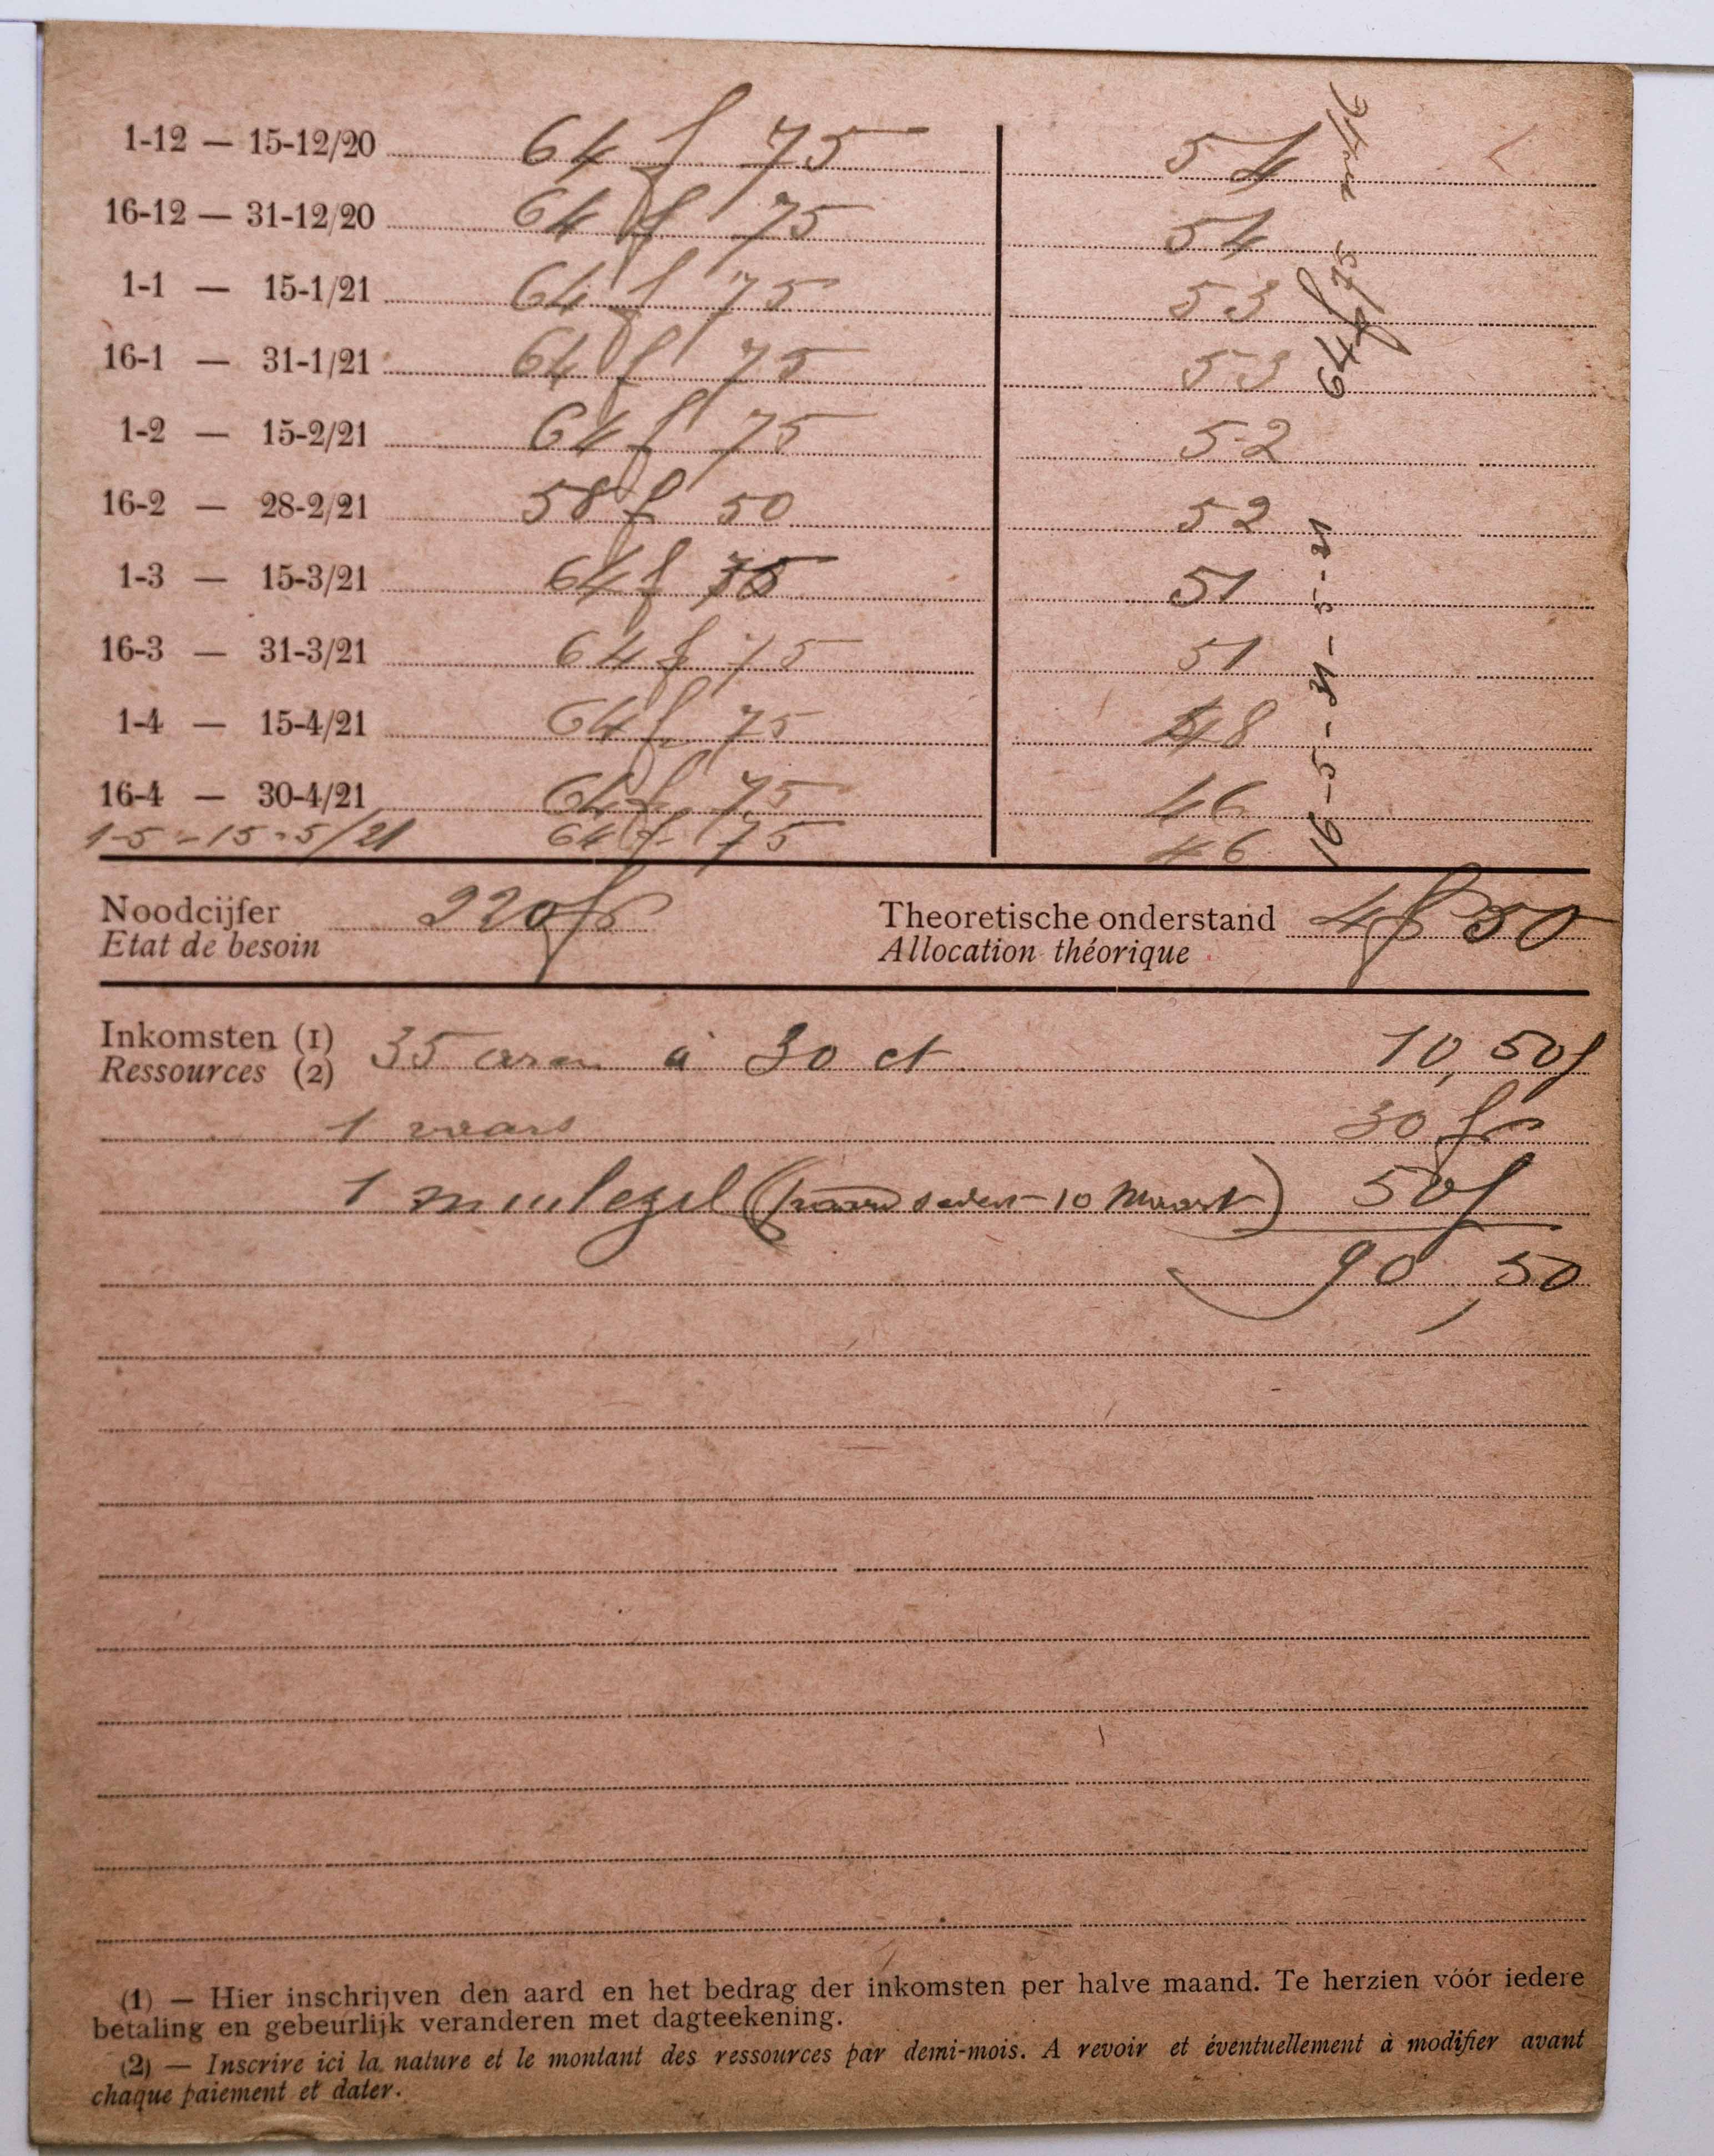 1-12 — 15-12/20 64 f 75 54
16-12 — 31-12/20 64 f 75 54
1-1 — 15-1/21 64 f 75 53
16-1 — 31-1/21 64 f 75 53
1-2 — 15-2/21 64 f 75 52
16-2 — 28-2/21 58 f 50 52
1-3 — 15-3/21 64 f 75 51
16-3 — 31-3/21 64 f 75 51
1-4 — 15-4/21 64 f 75 48
16-4 — 30-4/21 64 f 75 46
1-5 - 15-5/21 64 f 75 46
16-5-21 - 31-5-21 64 f 75
Noodcijfer 220 fr Theoretische onderstand 4 f 50
Etat de besoin Allocation théorique
Inkomsten (1) 35 aren à 30 ct 10,50 f
Ressources (2)
1 vaars 30 fr
1 muilezel (paard seders 10 Maart) 50 f
90,50
(1) — Hier inschrijven den aard en het bedrag der inkomsten per halve maand. Te herzien vóór iedere
betaling en gebeurlijk veranderen met dagteekening.
(2) — Inscrire ici la nature et le montant des ressources par demi-mois. A revoir et éventuellement à modifier avant
chaque paiement et dater.